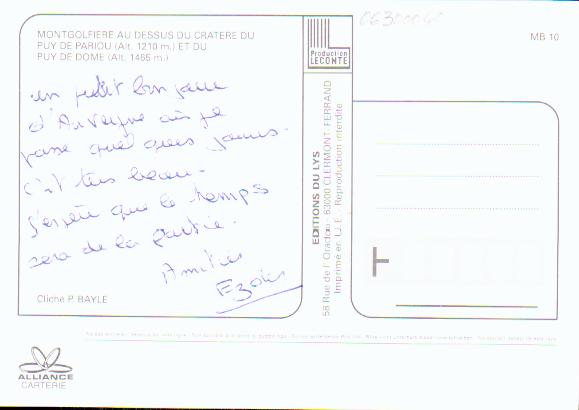 06300060
MONTGOLFIERE AU DESSUS DU CRATERE DU
PUY DE PARIOU (Alt. 1210 m.) ET DU
PUY DE DOME (Alt. 1465 m.)
un petit bonjour
d'Auvergne où je
passe quelques jours.
c'est très beau.
J'espère que le temps
sera de la partie.
Amitiés
Cliché P. BAYLE
Production
LECONTE
MB 10
EDITIONS DU LYS
58 Rue de l'Oradou - 63000 CLERMONT-FERRAND
Imprimé en U.E. - Reproduction interdite
ALLIANCE
CARTERIE